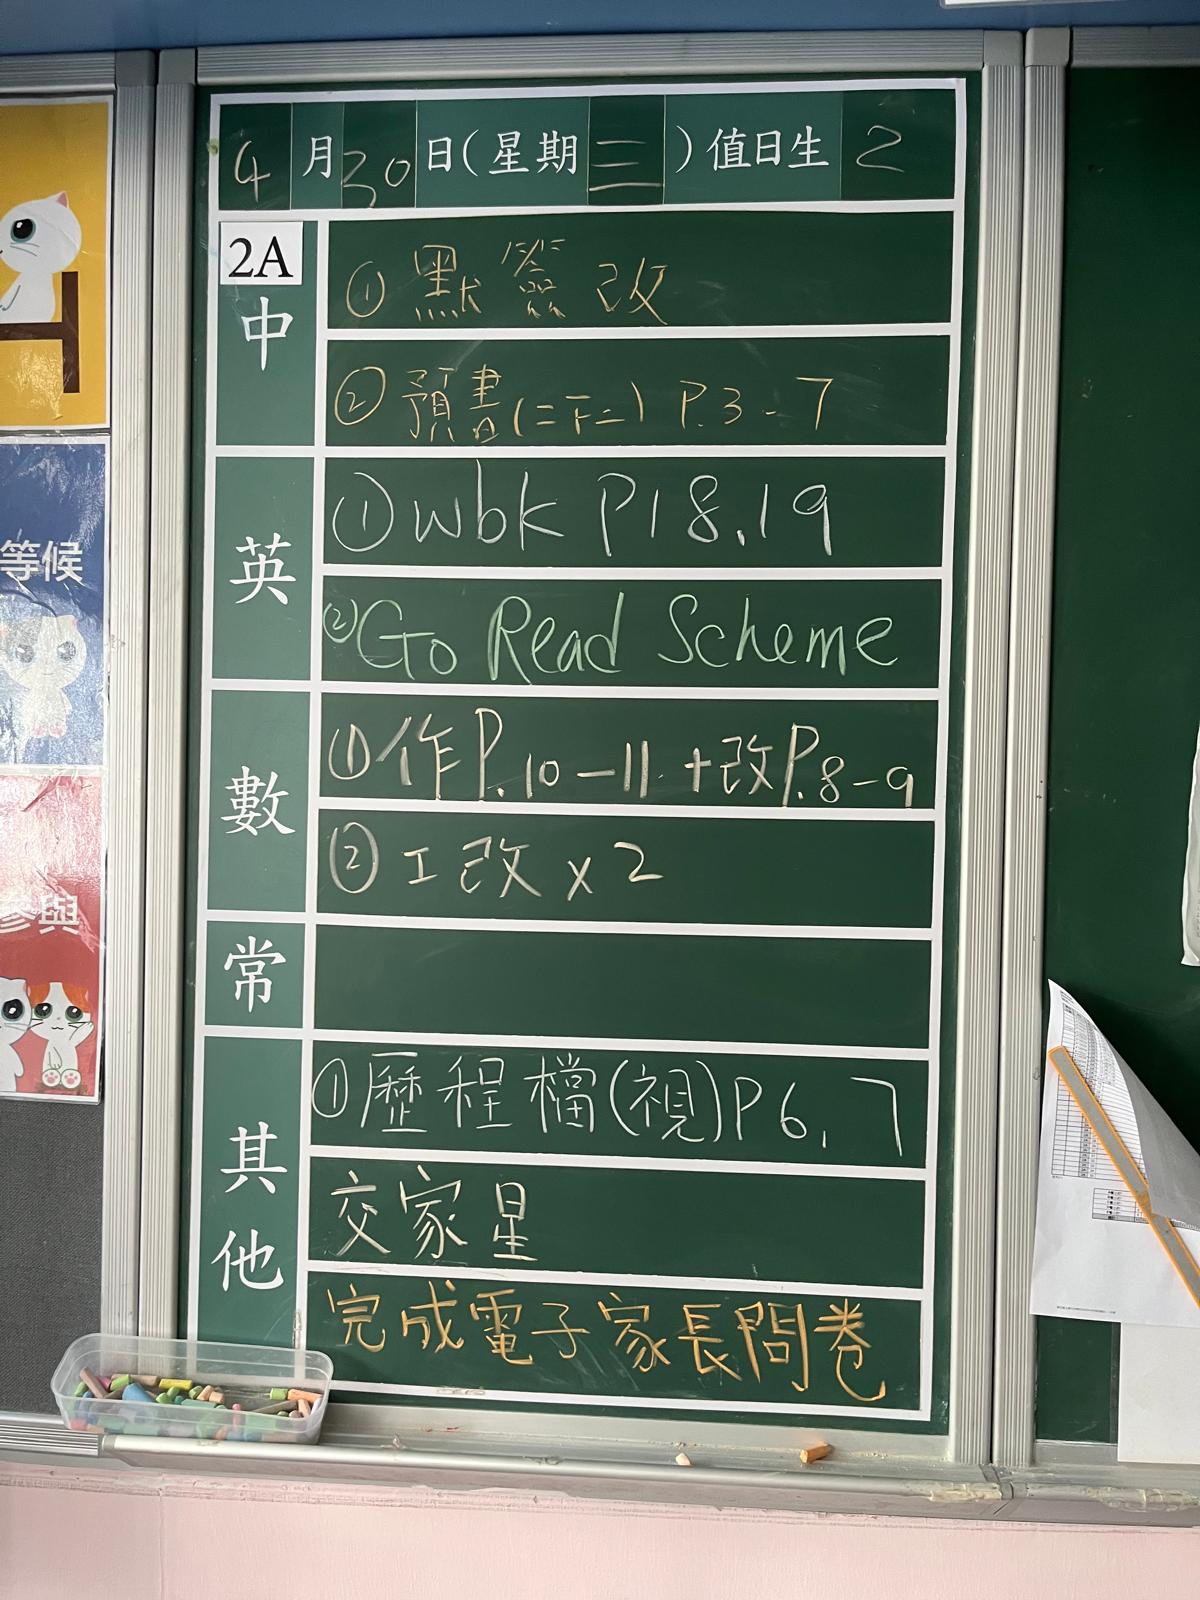 4月30日(星期三)值日生 2
2A
中
①默簽改
②預書(二下二) P.3-7
英
①wbk P18,19
②Go Read Scheme
數
①作P.10-11 +改P.8-9
②工改x2
常
其他
①歷程檔(視)P6,7
交家星
完成電子家長問卷
等候
參與